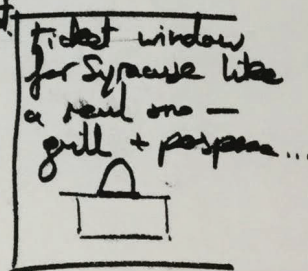 ticket window
for Syracuse like
a real one —
grill +